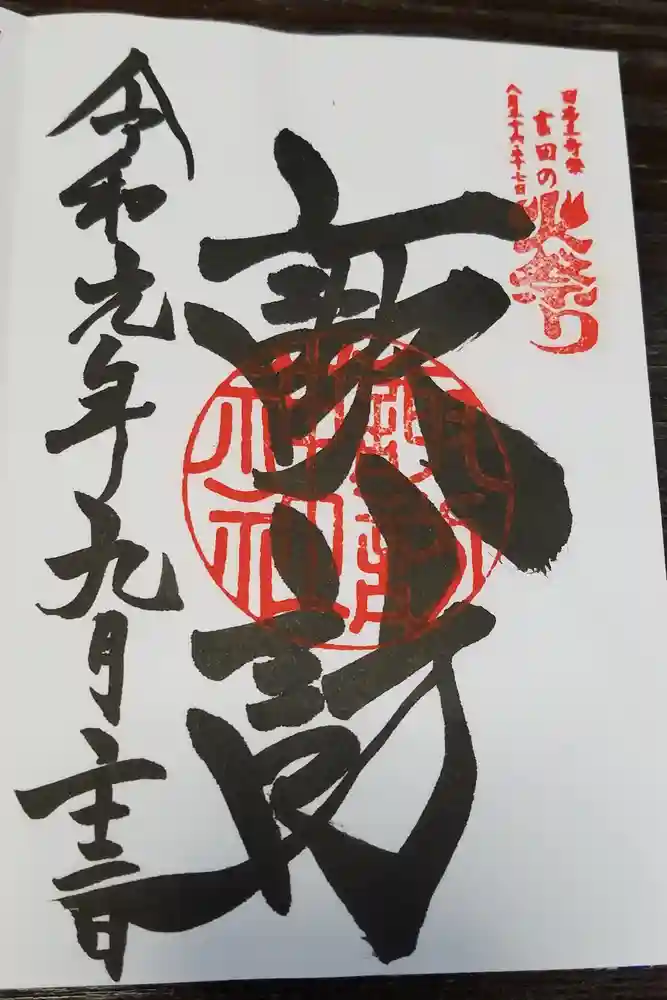 日本三奇祭
吉田の
火祭り
八月二十六・二十七日
諏訪
令和元年九月